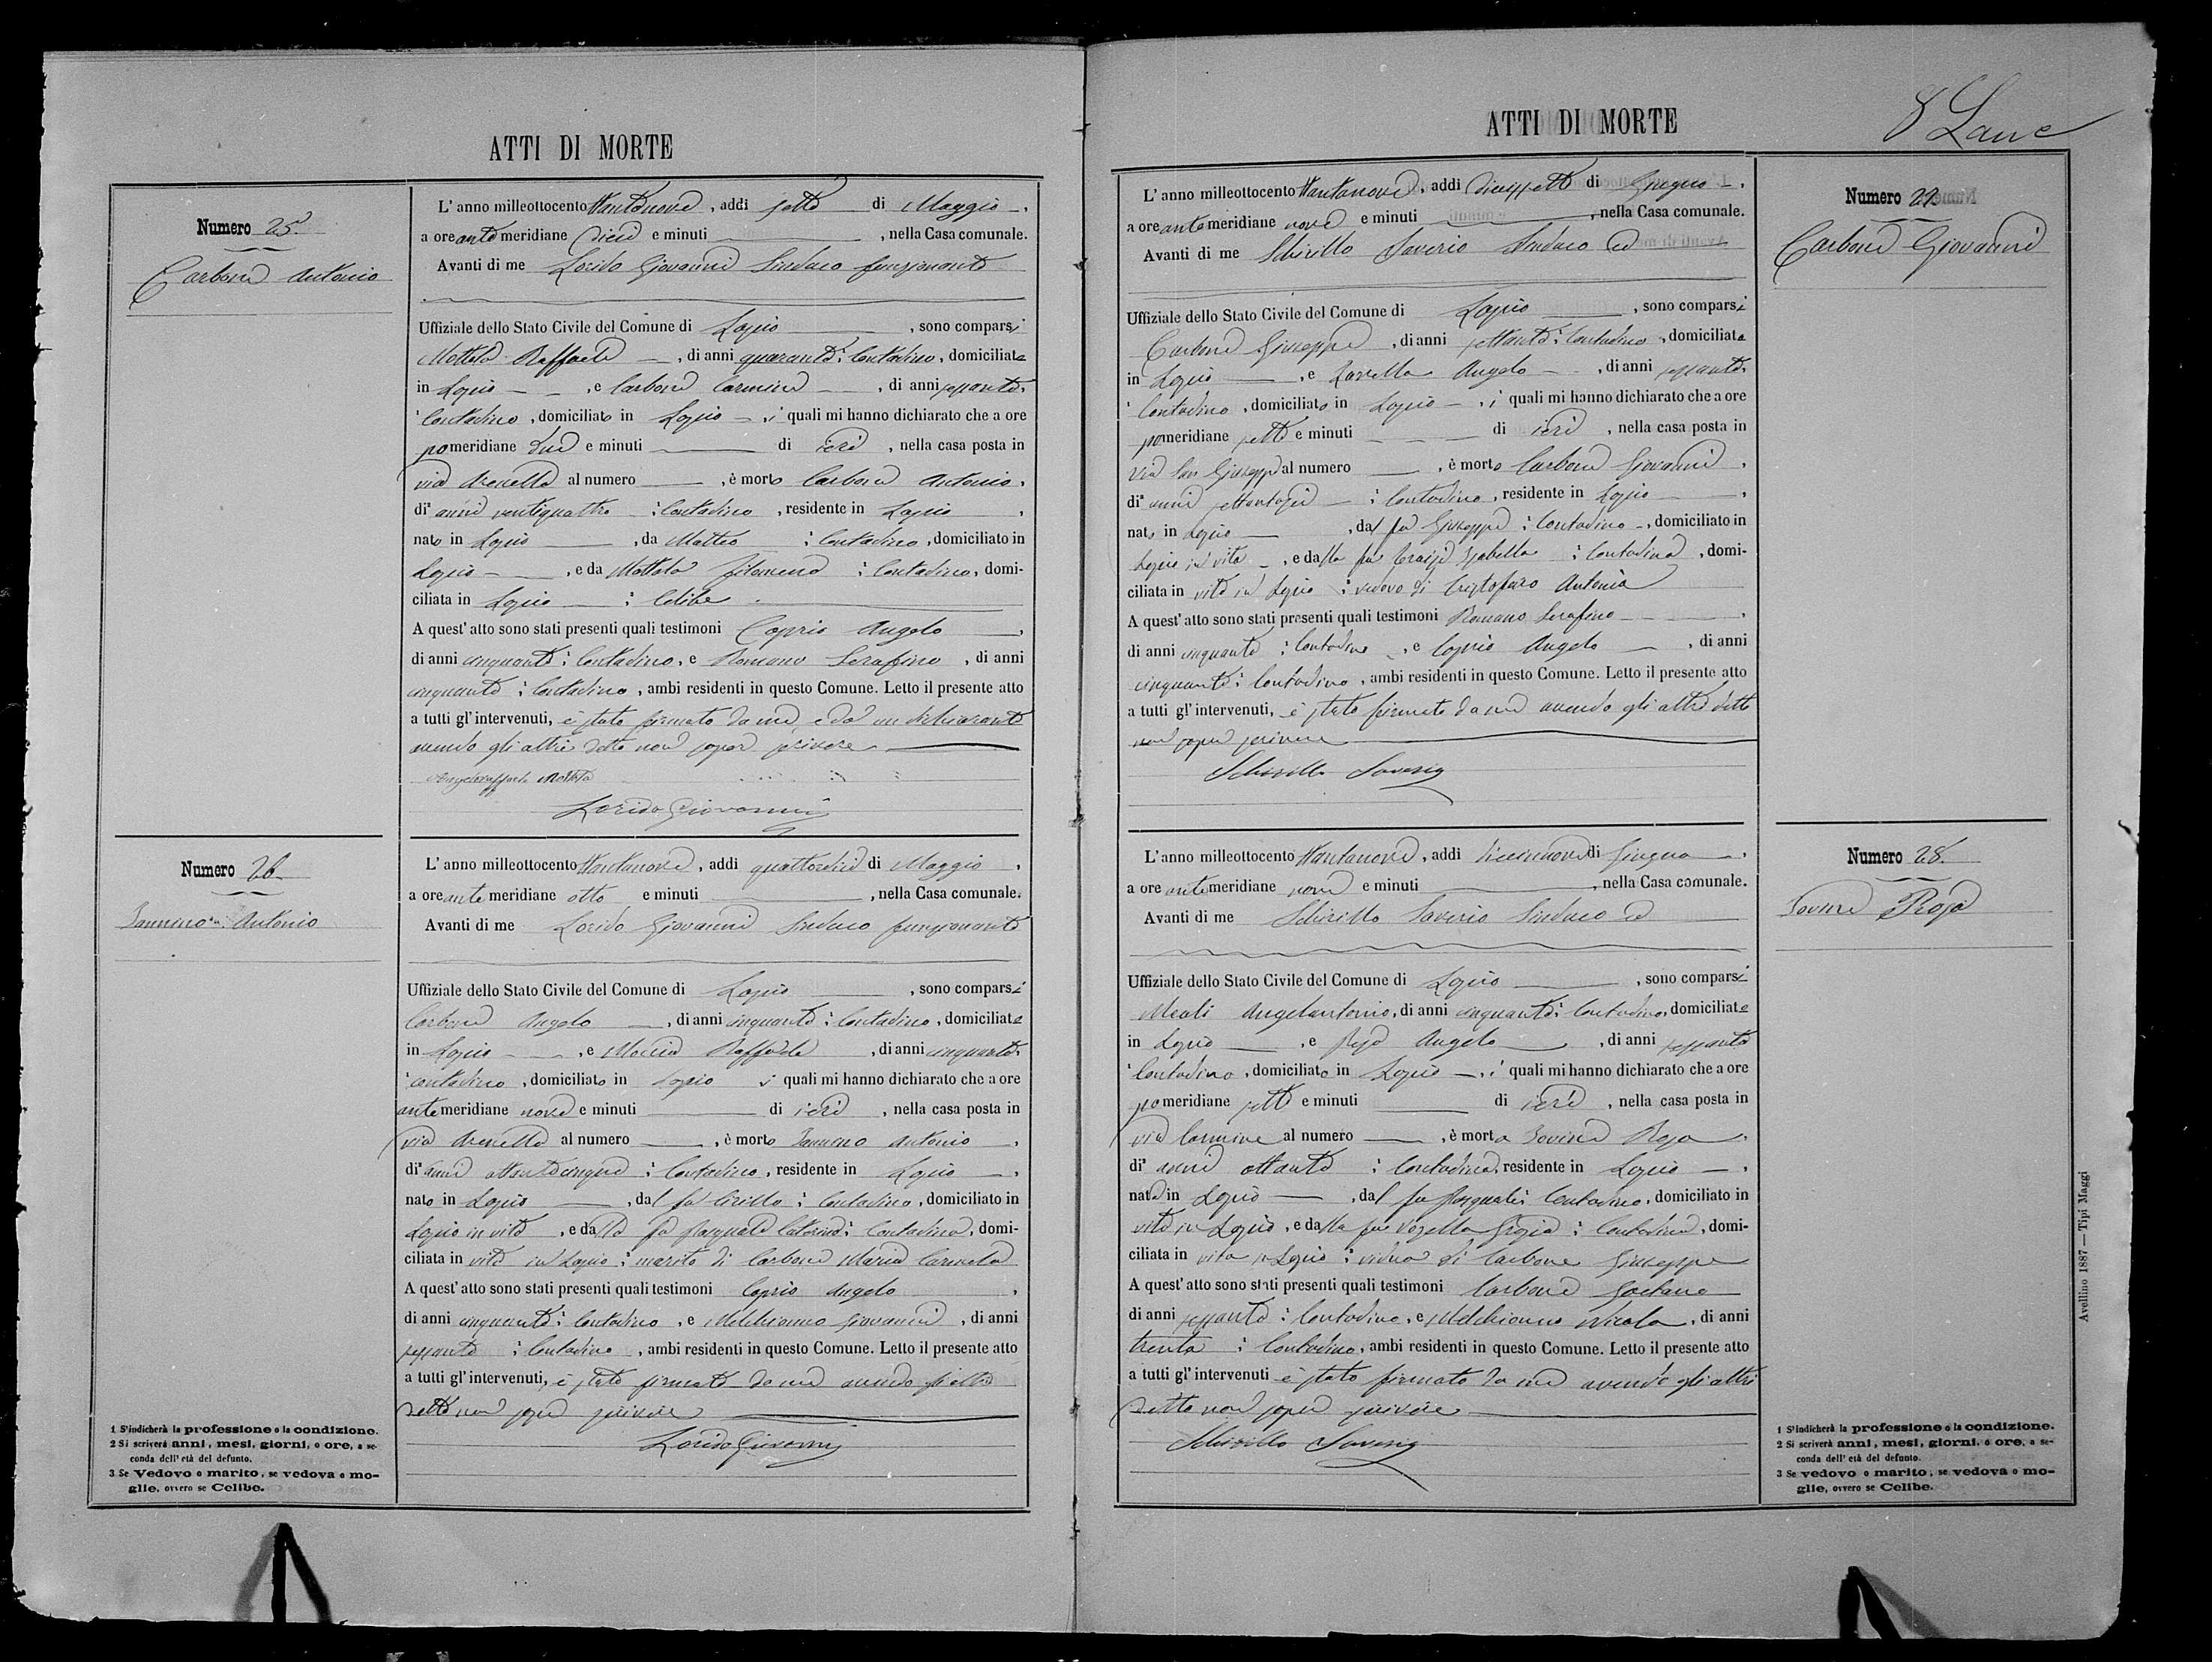 ATTI DI MORTE
Numero 25
Carbone Antonio
L'anno milleottocento ottantanove, addì sette di Maggio,
a ore antemeridiane dieci e minuti, nella Casa comunale.
Avanti di me Lorido Giovanni Sindaco funzionante
Uffiziale dello Stato Civile del Comune di Lapio, sono comparsi
Mottola Raffaele, di anni quaranta, contadino, domiciliato
in Lapio, e Carbone Carmine, di anni sessanta,
contadino, domiciliato in Lapio, i quali mi hanno dichiarato che a ore
pomeridiane due e minuti di ieri, nella casa posta in
via Arenella al numero, è morto Carbone Antonio,
di anni ventiquattro contadino, residente in Lapio,
nato in Lapio, da Matteo contadino, domiciliato in
Lapio, e da Mottola Filomena contadina, domi-
ciliata in Lapio celibe
A quest'atto sono stati presenti quali testimoni Caprio Angelo,
di anni cinquanta contadino, e Romano Serafino, di anni
cinquanta contadino, ambi residenti in questo Comune. Letto il presente atto
a tutti gl'intervenuti, è stato firmato da me e dal un dichiarante
avendo gli altri detto non saper scrivere
Mottola
Lorido Giovanni
Numero 26
Iannino Antonio
L'anno milleottocento ottantanove, addì quattordici di Maggio,
a ore antemeridiane otto e minuti, nella Casa comunale.
Avanti di me Lorido Giovanni Sindaco funzionante
Uffiziale dello Stato Civile del Comune di Lapio, sono comparsi
Carbone Angelo, di anni cinquanta contadino, domiciliato
in Lapio, e Moccia Raffaele, di anni cinquanta,
contadino, domiciliato in Lapio i quali mi hanno dichiarato che a ore
antemeridiane nove e minuti di ieri, nella casa posta in
via Arenella al numero, è morto Antonio,
di anni ottantacinque contadino, residente in Lapio,
nato in Lapio, dal fu Cirillo contadino, domiciliato in
Lapio in vita, e dalla fu Pasquale Caterina contadina, domi-
ciliata in vita in Lapio marito di Carbone Maria Carmela
A quest'atto sono stati presenti quali testimoni Caprio Angelo,
di anni cinquanta contadino, e Melchionno Giovanni, di anni
sessanta contadino, ambi residenti in questo Comune. Letto il presente atto
a tutti gl'intervenuti, è stato firmato da me avendo gli altri
detto non saper scrivere
Lorido Giovanni
1 S'indicherà la professione o la condizione.
2 Si scriverà anni, mesi, giorni, o ore, a se-
conda dell'età del defunto.
3 Se Vedovo o marito, se vedova o mo-
glie, ovvero se Celibe.
ATTI DI MORTE
8
Numero 27
Carbone Giovanni
L'anno milleottocento ottantanove, addì diecissette di Giugno,
a ore antemeridiane nove e minuti, nella Casa comunale.
Avanti di me Schirillo Saverio Sindaco ed
Uffiziale dello Stato Civile del Comune di Lapio, sono comparsi
Carbone Giuseppe, di anni settanta contadino, domiciliato
in Lapio, e Angelo, di anni sessanta,
contadino, domiciliato in Lapio, i quali mi hanno dichiarato che a ore
pomeridiane sette e minuti di ieri, nella casa posta in
via San Giuseppe al numero, è morto Carbone Giovanni,
di anni settantasei contadino, residente in Lapio,
nato in Lapio, dal fu Giuseppe contadino, domiciliato in
Lapio in vita, e dalla fu Isabella contadina, domi-
ciliata in vita in Lapio vedovo di Cristofaro Antonia
A quest'atto sono stati presenti quali testimoni Romano Serafino,
di anni cinquanta contadino, e Caprio Angelo, di anni
cinquanta contadino, ambi residenti in questo Comune. Letto il presente atto
a tutti gl'intervenuti, è stato firmato da me avendo gli altri detto
non saper scrivere
Schirillo Saverio
Numero 28
Iovine Rosa
L'anno milleottocento ottantanove, addì diecinnove di Giugno,
a ore antemeridiane nove e minuti, nella Casa comunale.
Avanti di me Schirillo Saverio Sindaco ed
Uffiziale dello Stato Civile del Comune di Lapio, sono comparsi
Meoli Angelantonio, di anni cinquanta contadino, domiciliato
in Lapio, e Angelo, di anni sessanta
contadino, domiciliato in Lapio, i quali mi hanno dichiarato che a ore
pomeridiane sette e minuti di ieri, nella casa posta in
via Carmine al numero, è morta Iovine Rosa,
di anni ottanta contadina, residente in Lapio,
nata in Lapio, dal fu Pasquale contadino, domiciliato in
vita in Lapio, e dalla fu contadina, domi-
ciliata in vita in Lapio vedova di Carbone Giuseppe
A quest'atto sono stati presenti quali testimoni Carbone Gaetano
di anni sessanta contadino, e Melchionno Nicola, di anni
trenta contadino, ambi residenti in questo Comune. Letto il presente atto
a tutti gl'intervenuti è stato firmato da me avendo gli altri
detto non saper scrivere
Schirillo Saverio
1 S'indicherà la professione o la condizione.
2 Si scriverà anni, mesi, giorni, o ore, a se-
conda dell'età del defunto.
3 Se vedovo o marito, se vedova o mo-
glie, ovvero se Celibe.
Avellino 1887 — Tipi Maggi